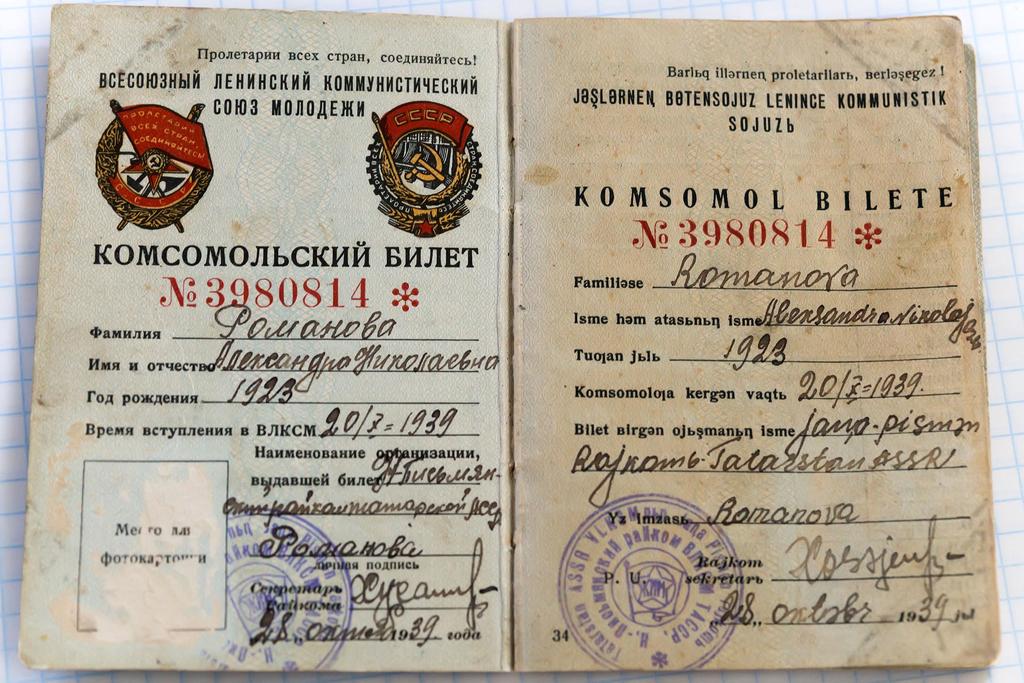 Пролетарии всех стран, соединяйтесь!
ВСЕСОЮЗНЫЙ ЛЕНИНСКИЙ КОММУНИСТИЧЕСКИЙ
СОЮЗ МОЛОДЕЖИ
ПРОЛЕТАРИИ
ВСЕХ СТРАН
СОЕДИНЯЙТЕСЬ
СССР
СССР
КОМСОМОЛЬСКИЙ БИЛЕТ
№ 3980814 *
Фамилия Романова
Имя и отчество Александра Николаевна
Год рождения 1923
Время вступления в ВЛКСМ 20/X=1939
Наименование организации,
выдавшей билет Н-Письмян-
ский райком татарской АССР
Место для
фотокарточки
Романова
личная подпись
Секретарь
Райкома
"28" октяб 1939 года
Barlьq illərneꞑ proletarilarь, berləşegez!
JƏŞLƏRNEꞐ BƟTENSOJUZ LENINCE KOMMUNISTIK
SOJUZЬ
KOMSOMOL BILETE
№ 3980814 *
Familiəse Romanova
Isme həm atasьnьꞑ isme Aleksandra Nikolajevna
Tuƣan jьlь 1923
Komsomolƣa kergən vaqtь 20/X=1939.
Bilet birgən ojьşmanьꞑ isme jaꞑa-pismən
Rajkomь Tatarstan ASSR
Yz imzasь Romanova
Rajkom
P. U. sekretarь
"28" oktəbr 1939 jьl
34